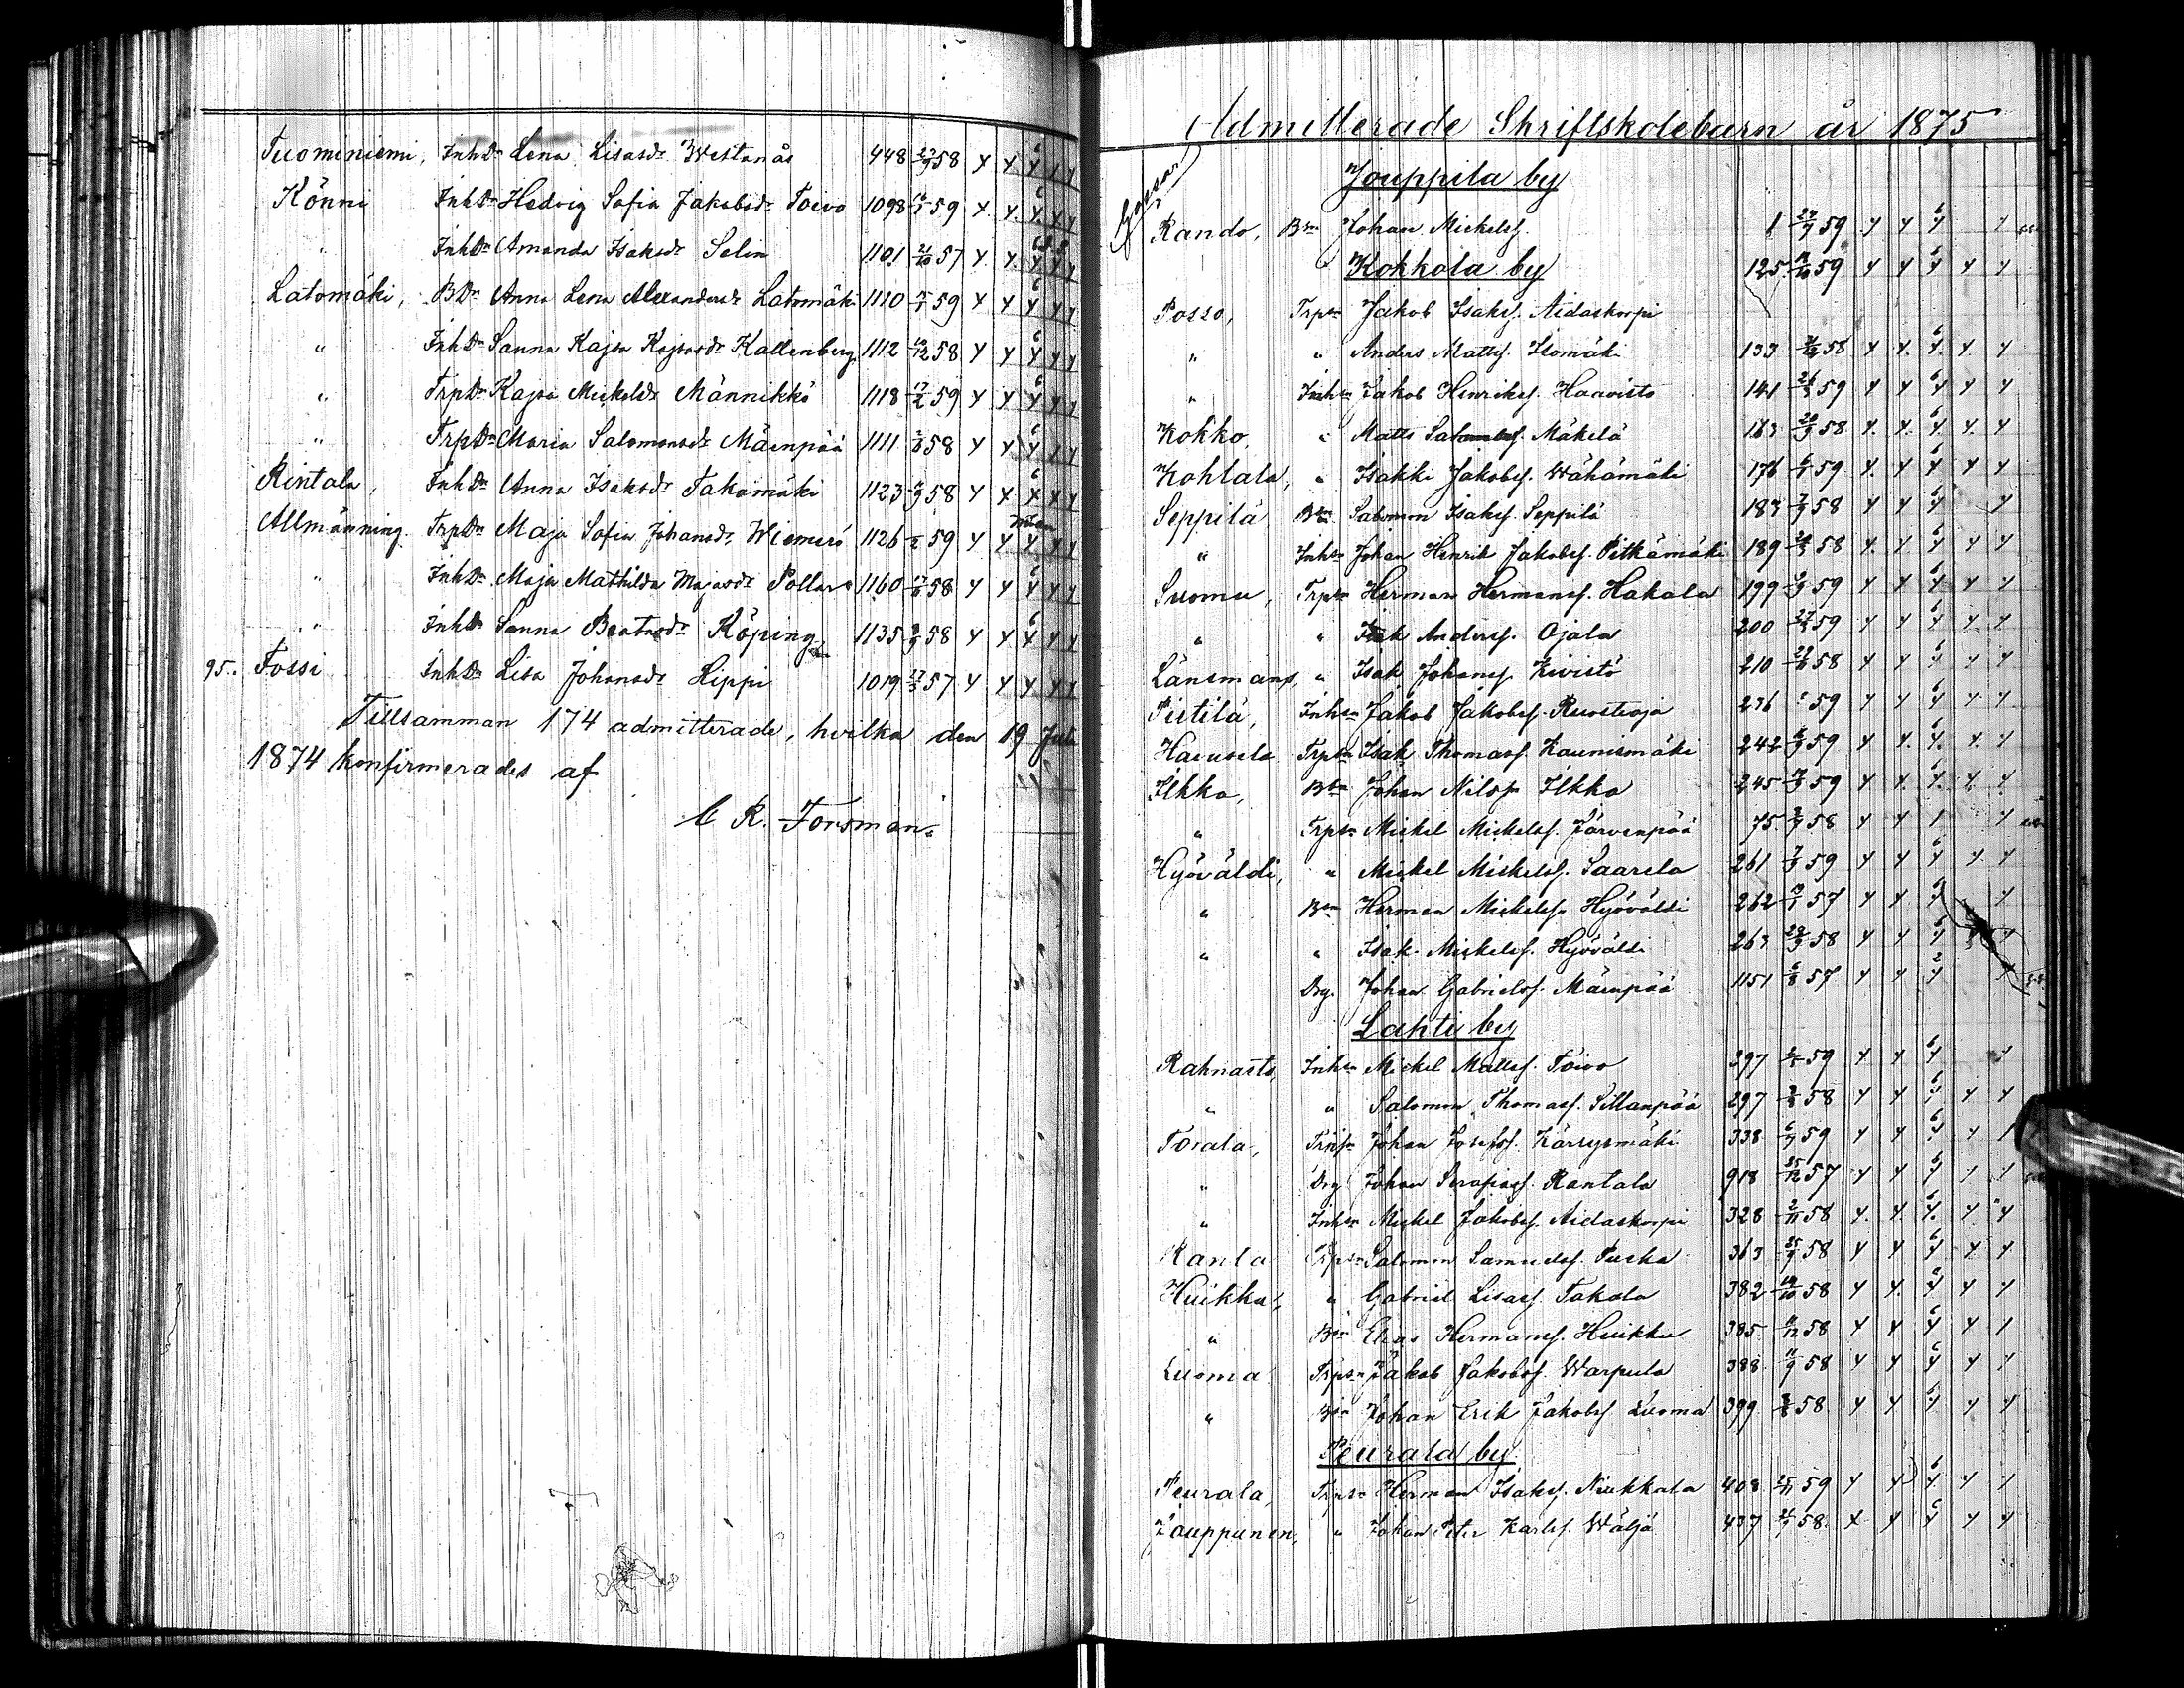 Tuominiemi, InhDr Lena Lisasdr Westanås 448 58 y y y y y
Könni InhDr Hedvig Sofia Jakobsdr Toivo 1098 59 x y y y y
" InhDr Amanda Isaksdr Selin 1101 21/10 57 y y y y y
Latomäki, BDr Anna Lena Alexandersdr Latomäki 1110 59 x y y y y
" InhDr Sanna Kajsa Kajsasdr Kallenberg 1112 58 y y y y y
" TrpDr Kajsa Mickelsdr Männikkö 1118 17/2 59 y y y y y
" TrpDr Maria Salomonsdr Mäenpää 1111 58 y y y y y
Rintala, InhDr Anna Isaksdr Takamäki 1123 58 y x x x y
Allmänning. TrpDr Maja Sofia Johansdr Wiemerö 1126 59 y y y y y
" InhDr Maja Mathilda Majasdr Pollari 1160 58 y y y y y
" InhDr Sanna Beatasdr Köping 1135 58 y y x y y
95. Tossi InhDr Lisa Johansdr Lippi 1019 57 y y y y y
Tillsamman 174 admitterade, hvilka den 19 Juli
1874 konfirmerades af
C R. Forsman.
Admitterade Skriftskolebarn år 1875
Gossar
Jouppila by
Rando, Bsn Johan Mickelsf. 1 59 y y y y
Kokkola by 125 59 y y y y y
Posso, Trpsn Jakob Isaksf. Aidaskorpi
" " Anders Mattsf. Isomäki 133 58 y y y y y
" Inhsn Jakob Henriksf. Haavisto 141 59 y y y y y
Kokko, " Matts Mäkelä 163 20/9 58 y y y y y
Kohtala, " Isakki Jakobsf. Wähämäki 176 59 y y y y y
Seppilä Bsn Salomon Isaksf. Seppilä 183 58 y y y y
" Inhsn Johan Henrik Jakobsf. Pitkämäki 189 58 y y y y y
Suomu, Trpsn Herman Hermansf. Hakala 199 59 y y y y y
" " Isak Andersf. Ojala 200 59 y y y y y
Länsmans, " Isak Johansf. Kivistö 210 58 y y y y y
Pietilä, Inhsn Jakob Jakobsf. Ruostioja 236 59 y y y y y
Trpsn Isak Thomasf. Kaunismäki 242 59 y y y y y
Ilkka, Bsn Johan Nilsf. Ilkka 245 59 y y y y y
" Trpsn Mickel Mickelsf. Järvenpää 75 58 y y y y
Hyöväldi, " Mickel Mickelsf. Saarela 261 59 y y y y y
" Bsn Herman Mickelsf. Hyöväldi 262 57 y y y y
" " Isak Mickelsf. Hyöväldi 263 58 y y y y
Drg. Johan Gabrielsf. Mäenpää 1151 6/8 57 y y y y
Lahti by
Rahnasto, Inhsn Mickel Mattsf. Toivo 297 59 y y y y
" " Salomon Thomasf. Sillanpää 297 58 y y y y y
Torala, Trpsn Johan Josefsf. Kärrysmäki 338 59 y y y y y
" Drg Johan Serafiasf. Rantala 918 25/12 57 y y y y y
" Inhsn Mickel Jakobsf. Aidaskorpi 328 2/11 58 y y y y y
Ranta Trpsn Salomon Samuelsf. Puska 363 25/9 58 y y y y y
Huikku, " Gabriel Lisasf. Takala 382 58 y y y y y
" Bsn Elias Hermansf. Huikku 385 58 y y y y y
Luoma Trpsn Jakob Jakobsf. Warpula 388 11/9 58 y y y y y
" Bsn Johan Erik Jakobsf. Luoma 399 58 y y y y y
Peurala by
Peurala, Trpsn Herman Isaksf. Niukkala 408 59 y y y y y
Jouppunen, " Johan Peter Karlsf. Wäljä 437 58 x y y y y